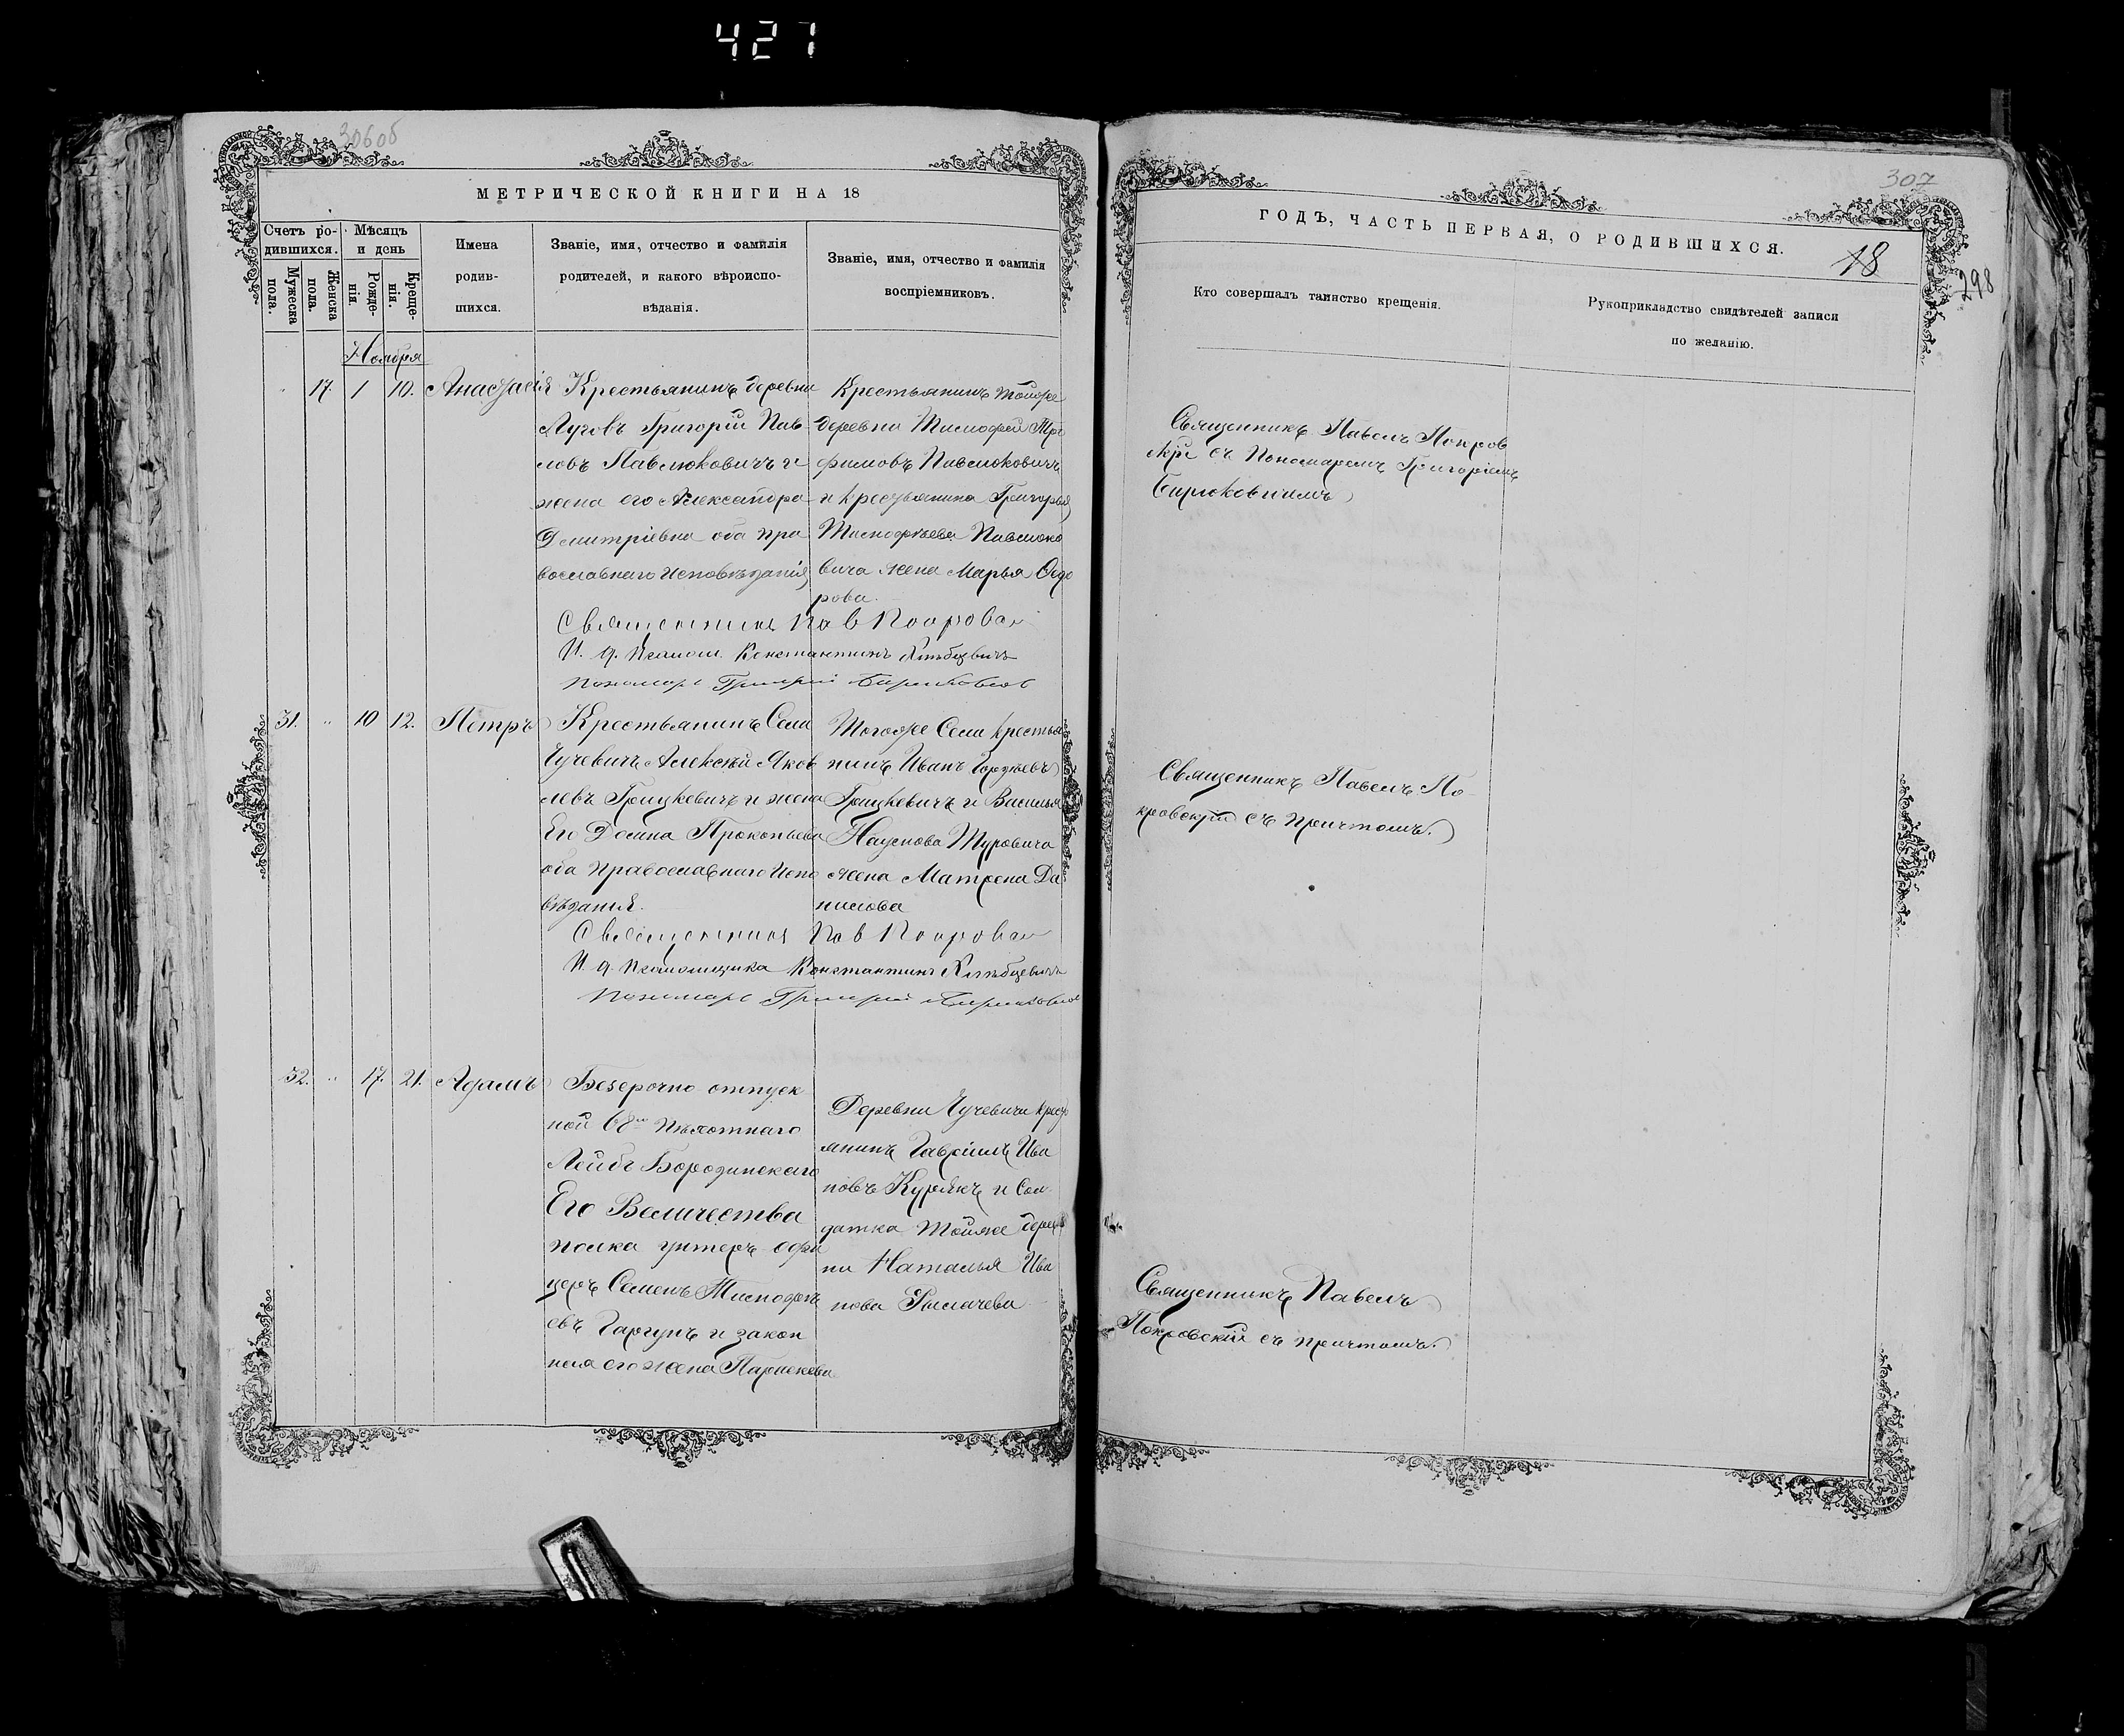 427
306об
МЕТРИЧЕСКОЙ КНИГИ НА 18
Счетъ ро-
дившихся.
Мужеска пола.
Женска пола.
Мѣсяцъ
и день
Рожде-
нія.
Креще-
нія.
Имена
родив-
шихся.
Званіе, имя, отчество и фамилія
родителей, и какого вѣроиспо-
вѣданія.
Званіе, имя, отчество и фамилія
воспріемниковъ.
Ноября
17. 1 10. Анастасія
Крестьянинъ деревни
Луговъ Григорій Пав
ловъ Павлюковичъ и
жена его Александра
Дмитріевна оба пра
вославнаго исповѣданія
Крестьянинъ тойже
деревни Тимофей Тро
фимовъ Павлюковичъ
и крестьянина Григорья
Тимофѣева Павлюко
вича жена Марья Ѳедо
рова.
Священникъ Пав Покровскій
И. д. псалом. Константинъ
Пономарь Григорій Бирюковичъ
31. " 10 12. Петръ
Крестьянинъ Села
Чучевичъ Алексѣй Яков
левъ Грицкевичъ и жена
Его Домна Прокопьева
оба православнаго испо
вѣданія.
Тогоже Села крестья
нинъ Иванъ Гордѣевъ
Грицкевичъ и Василья
Наумова Туровича
жена Матрена Да
нилова
Священникъ Пав Покровскій
И. д. псаломщика Константинъ
Пономарь Григорій Бирюковичъ
32. " 17. 21. Адамъ
Безсрочно отпуск
ной 68го пѣхотнаго
Лейбъ Бородинскаго
Его Величества
полка унтеръ-офи
церъ Семенъ Тимофѣ
евъ Гаргунъ и закон
ная его жена Параскева
Деревни Чучевичи крест
янинъ Гавріилъ Ива
новъ и Сол
датка тойже дерев
ни Наталья Ива
нова
307
ГОДЪ, ЧАСТЬ ПЕРВАЯ, О РОДИВШИХСЯ.
18
298
Кто совершалъ таинство крещенія.
Рукоприкладство свидѣтелей записи
по желанію.
Священникъ Павелъ Покров
скій съ Пономаремъ Григоріемъ
Бирюковичемъ
Священникъ Павелъ По-
кровскій съ причтомъ.
Священникъ Павелъ
Покровскій съ причтомъ.